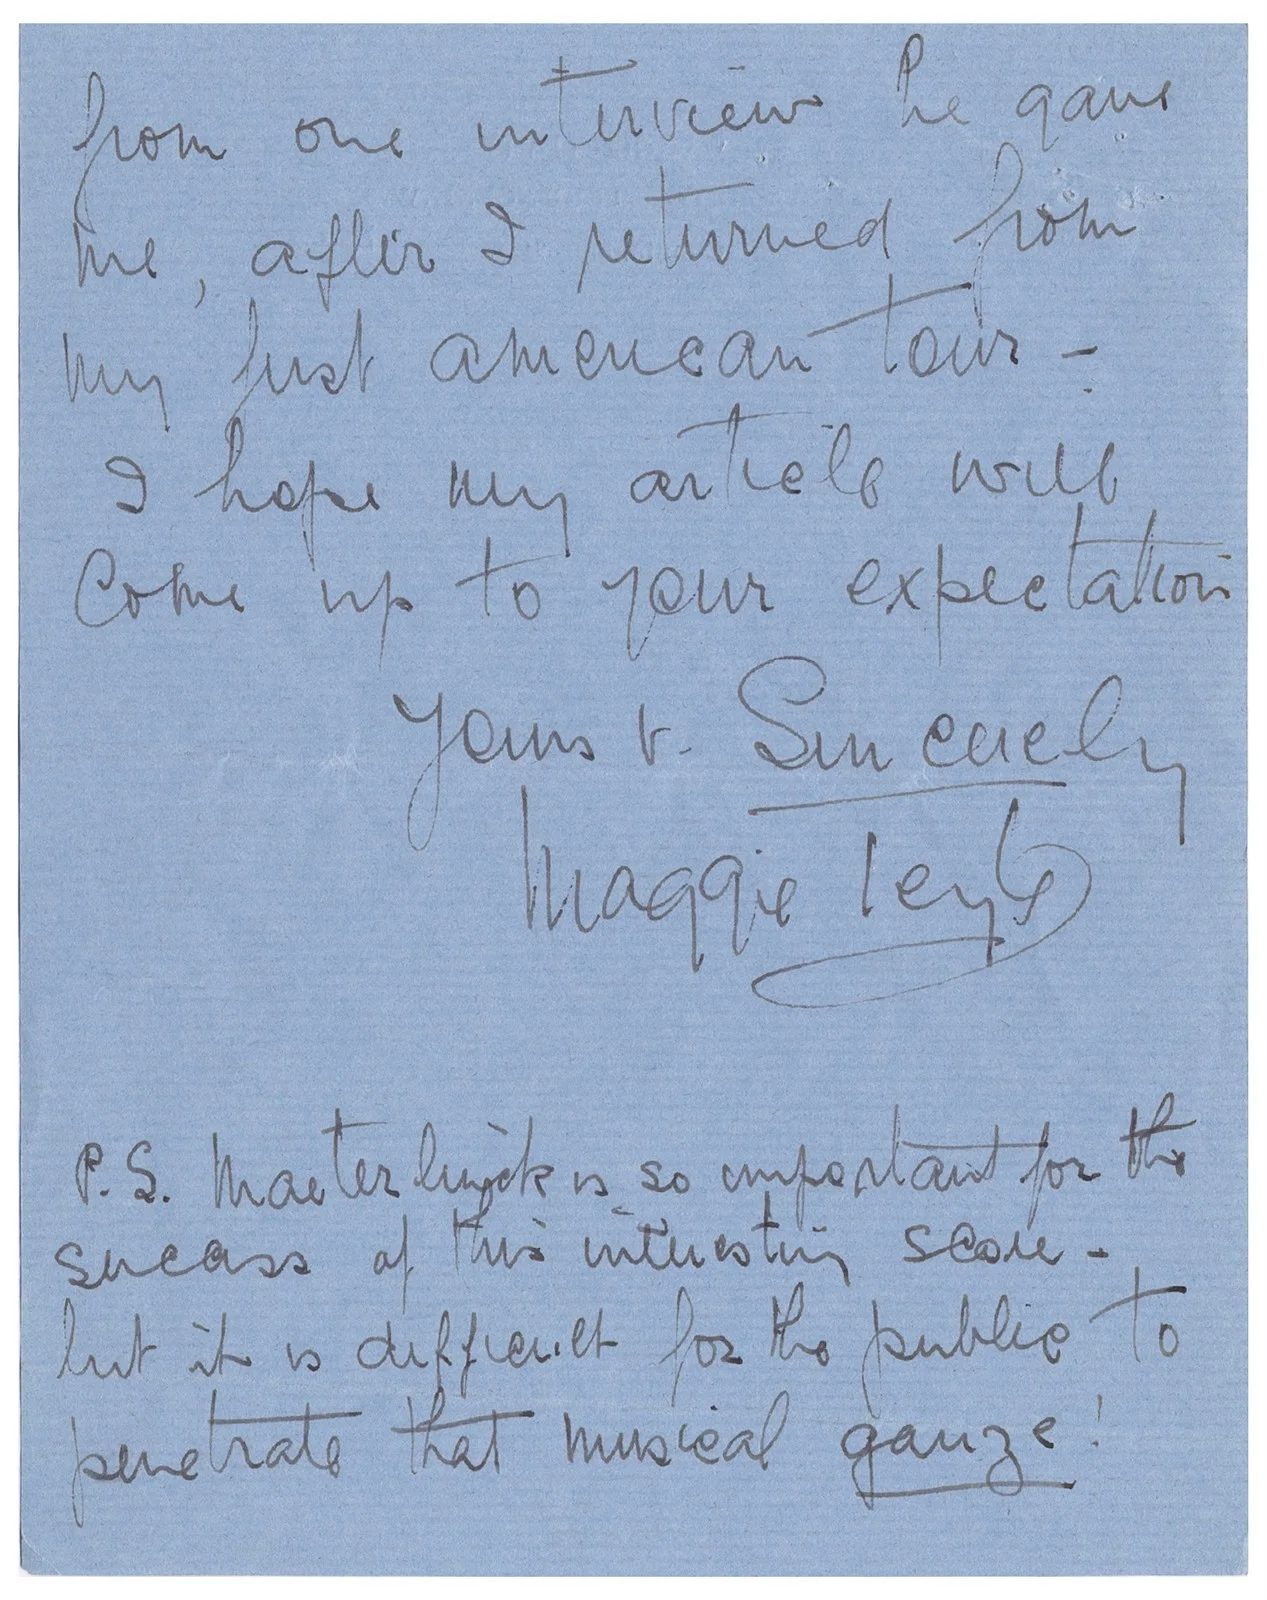 from one interview he gave
me, after I returned from
my first american tour -
I hope my article will
Come up to your expectation
Yours v. Sincerely
Maggie Teyte
P.S. Maeterlinick is so important for the
success of this interesting score -
but it is difficult for the public to
penetrate that musical gauze!